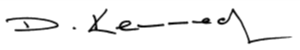 D. Kenned